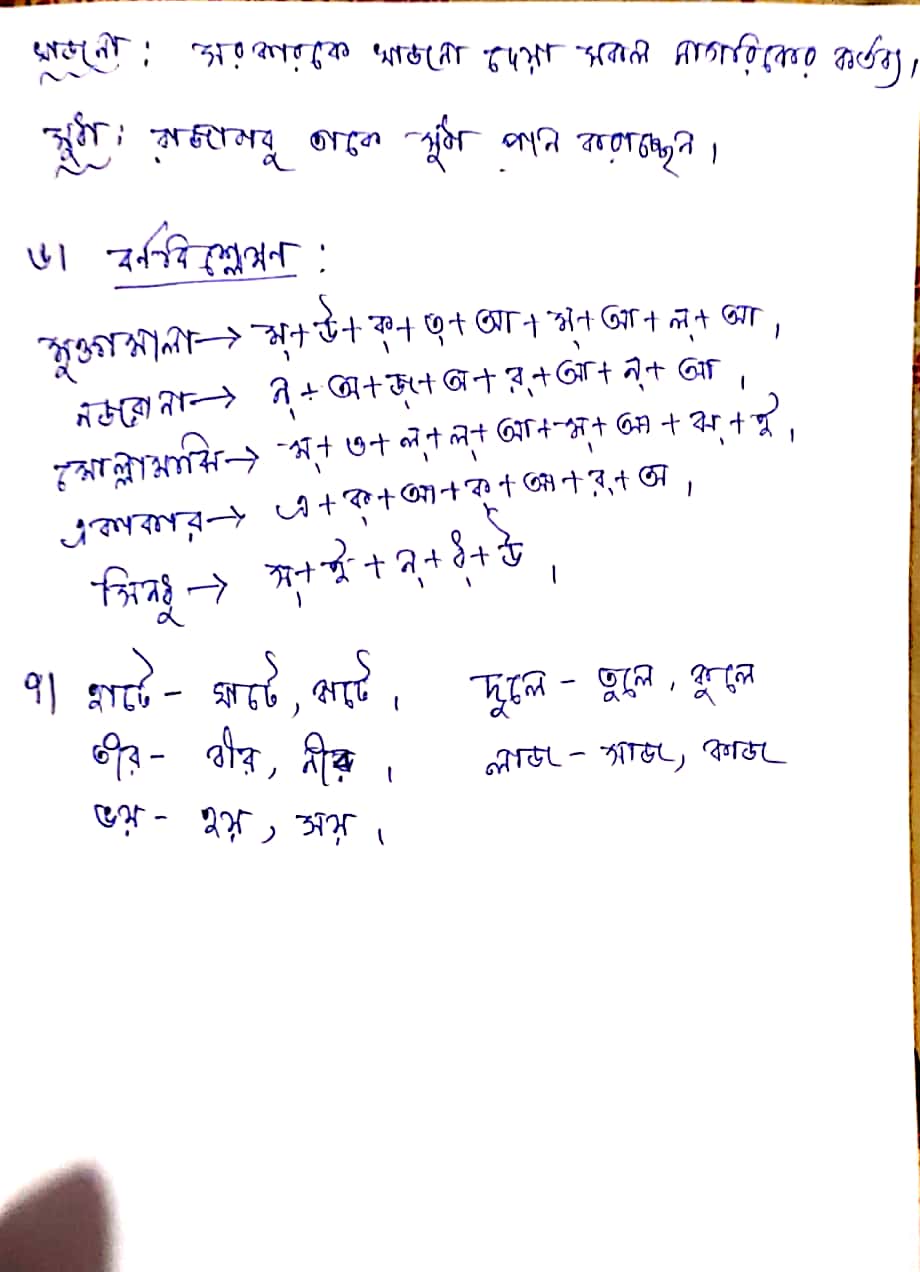 খাজনা : সরকারকে খাজনা দেয়া সকল নাগরিকের কর্তব্য।
সুধা : রাজাবাবু তাকে সুধা পান করাচ্ছেন।
৬। বর্ণবিশ্লেষণ :
মুক্তামালা → ম্ + উ + ক্ + ত্ + আ + ম্ + আ + ল্ + আ,
নজরানা → ন্ + অ + জ্ + অ + র্ + আ + ন্ + আ,
মোল্লামাঝি → ম্ + ও + ল্ + ল্ + আ + ম্ + আ + ঝ্ + ই,
একাকার → এ + ক্ + আ + ক্ + আ + র্ + অ,
সিন্ধু → স্ + ই + ন্ + ধ্ + উ,
৭। হাটে - ঘাটে, মাঠে, দুলে - তুলে, কুলে
তীর - বীর, নীর, লাজ - সাজ, কাজ
ভয় - হয়, সয়,